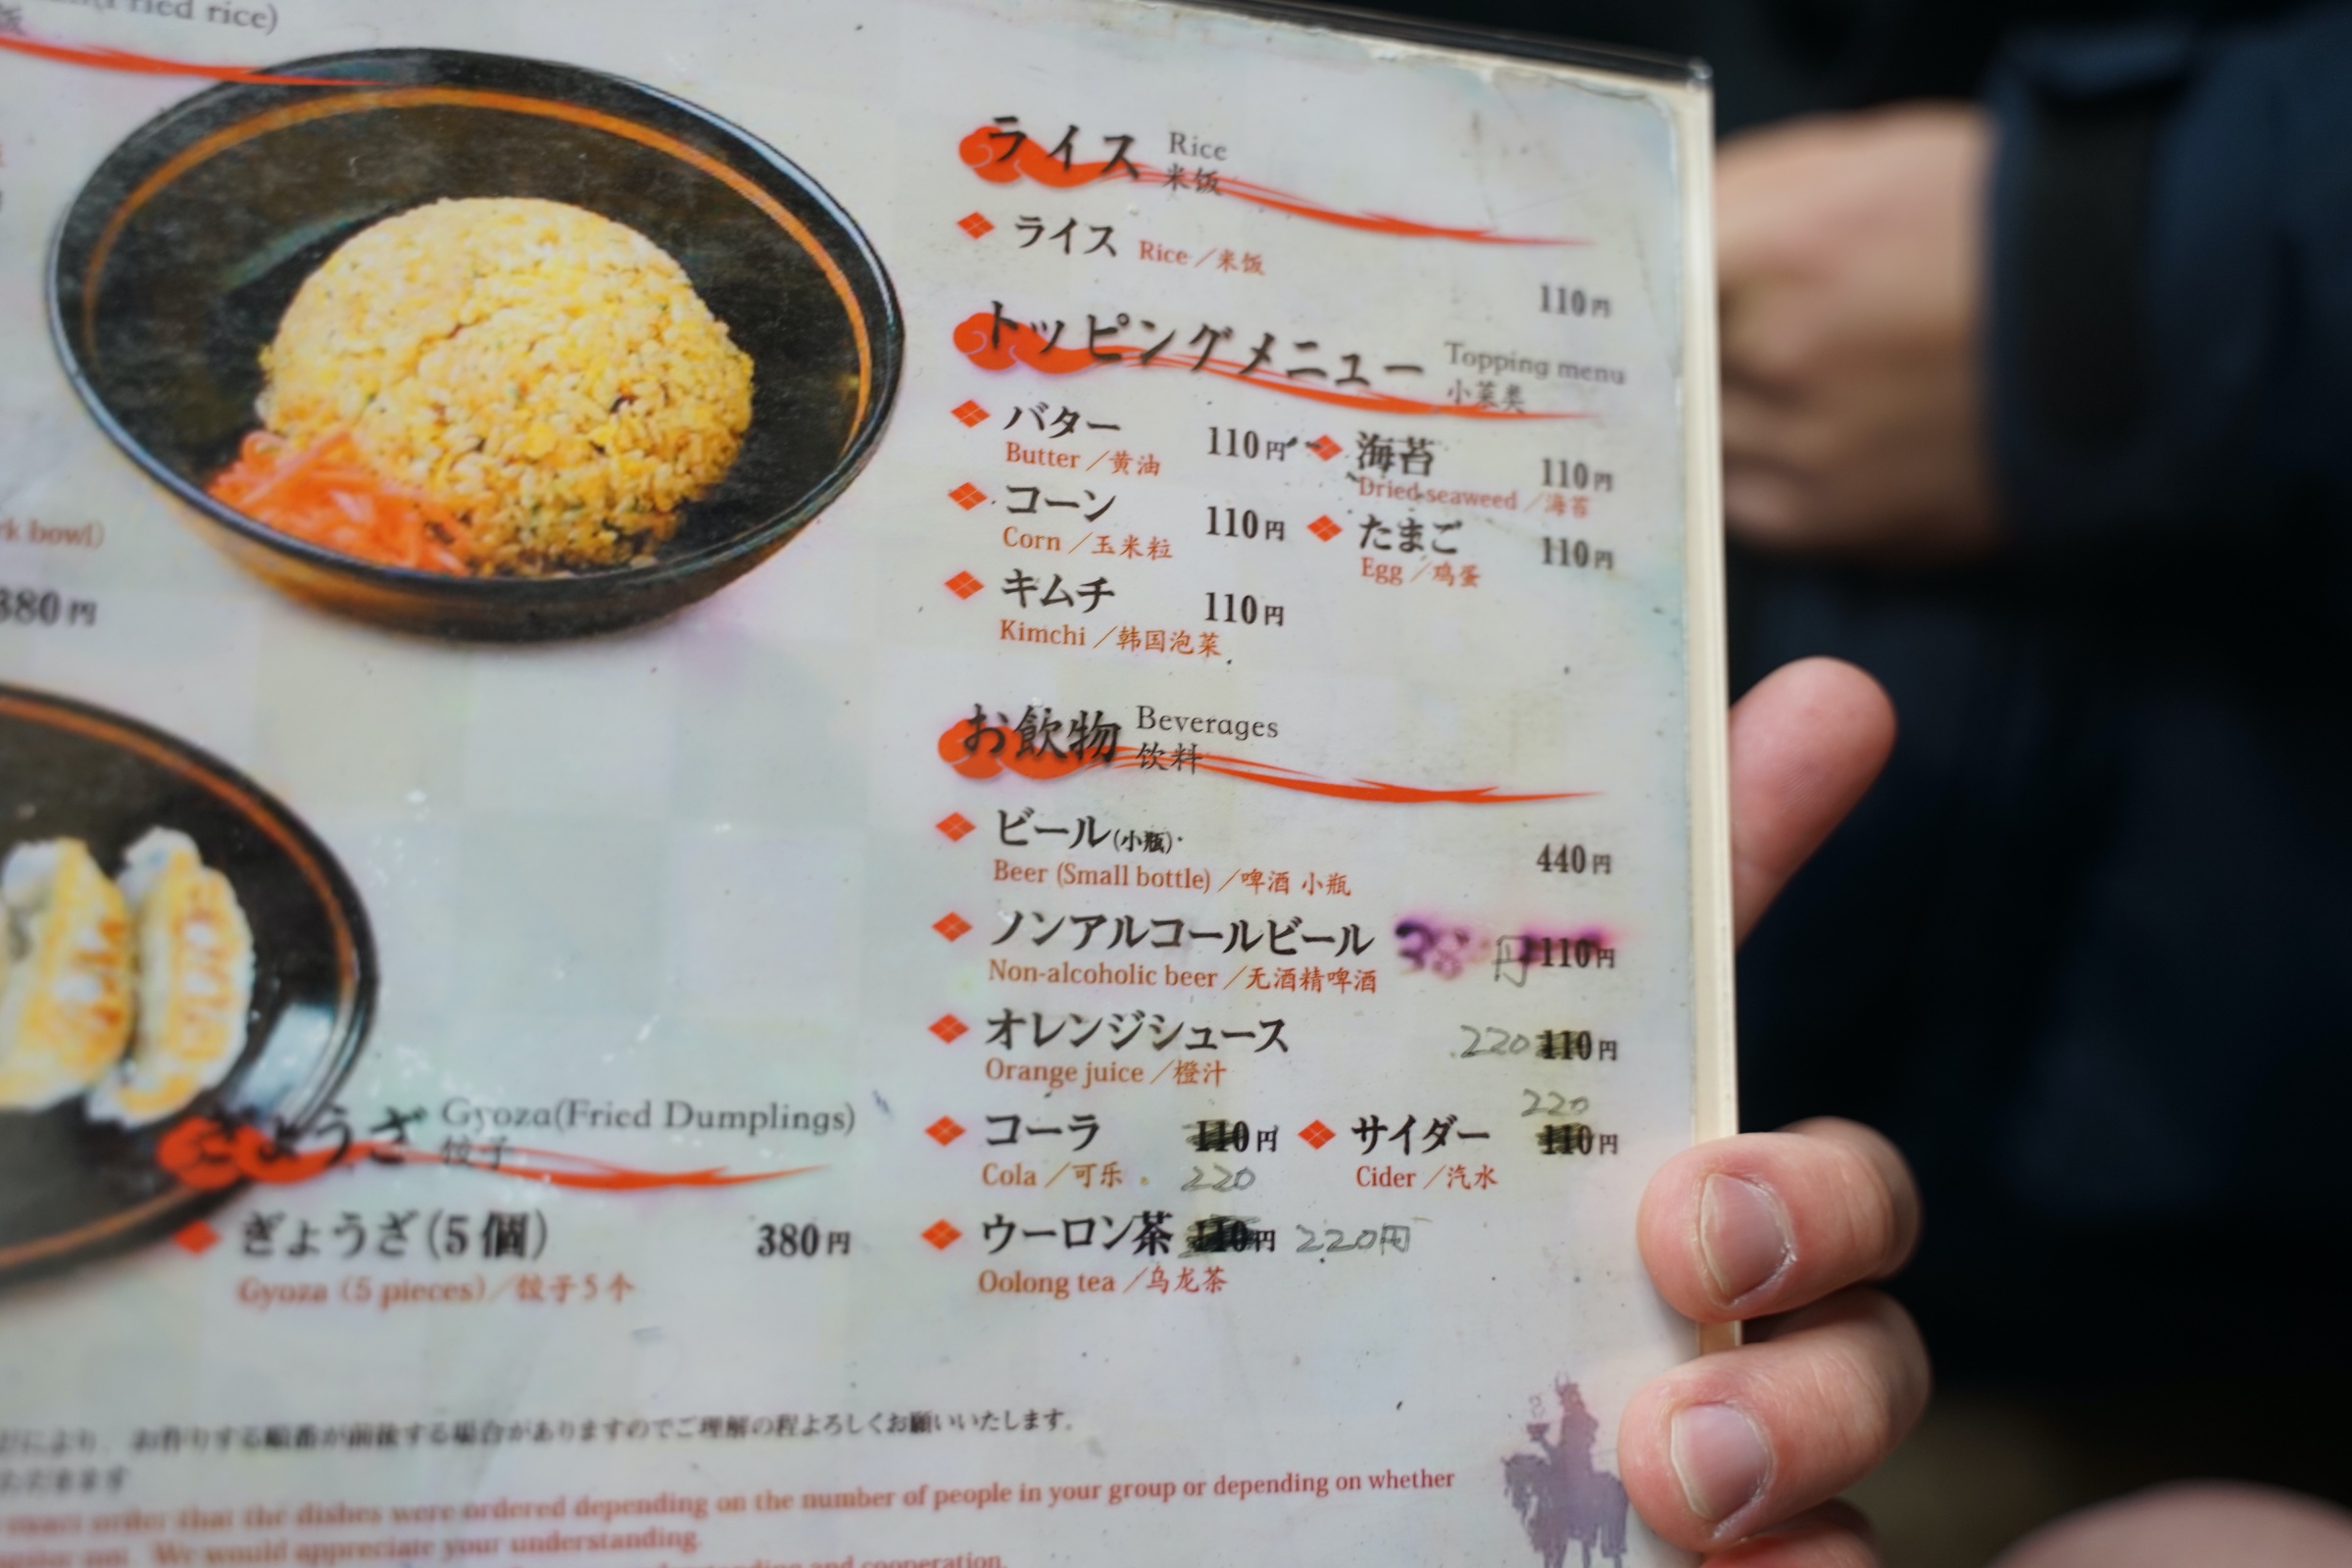 rice)
rk bowl)
380円
ライス Rice
米饭
ライス Rice／米饭
110円
トッピングメニュー Topping menu
小菜类
バター 110円
Butter／黄油
海苔 110円
Dried seaweed／海苔
コーン 110円
Corn／玉米粒
たまご 110円
Egg／鸡蛋
キムチ 110円
Kimchi／韩国泡菜
お飲物 Beverages
饮料
ビール(小瓶) 440円
Beer (Small bottle)／啤酒 小瓶
ノンアルコールビール 円 110円
Non-alcoholic beer／无酒精啤酒
オレンジジュース 220 110円
Orange juice／橙汁
コーラ 110円
Cola／可乐 220
220
サイダー 110円
Cider／汽水
ウーロン茶 110円 220円
Oolong tea／乌龙茶
ぎょうざ Gyoza(Fried Dumplings)
饺子
ぎょうざ(5個) 380円
Gyoza (5 pieces)／饺子5个
により、お作りする順番が前後する場合がありますのでご理解の程よろしくお願いいたします。
exact order that the dishes were ordered depending on the number of people in your group or depending on whether
We would appreciate your understanding.
and cooperation.